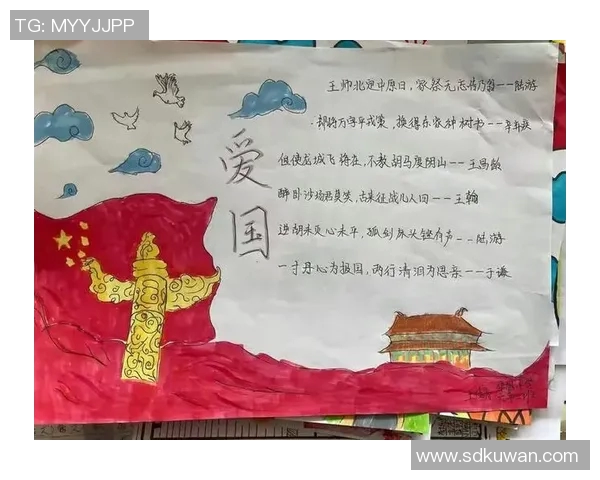 TG: MYYJJPP
爱国
王师北定中原日，家祭无忘告乃翁——陆游
却将万字平戎策，换得东家种树书——辛弃疾
但使龙城飞将在，不教胡马度阴山——王昌龄
醉卧沙场君莫笑，古来征战几人回——王翰
逆胡未灭心未平，孤剑床头铿有声——陆游
一寸丹心为报国，两行清泪为思亲——于谦
www.sdkuwan.com